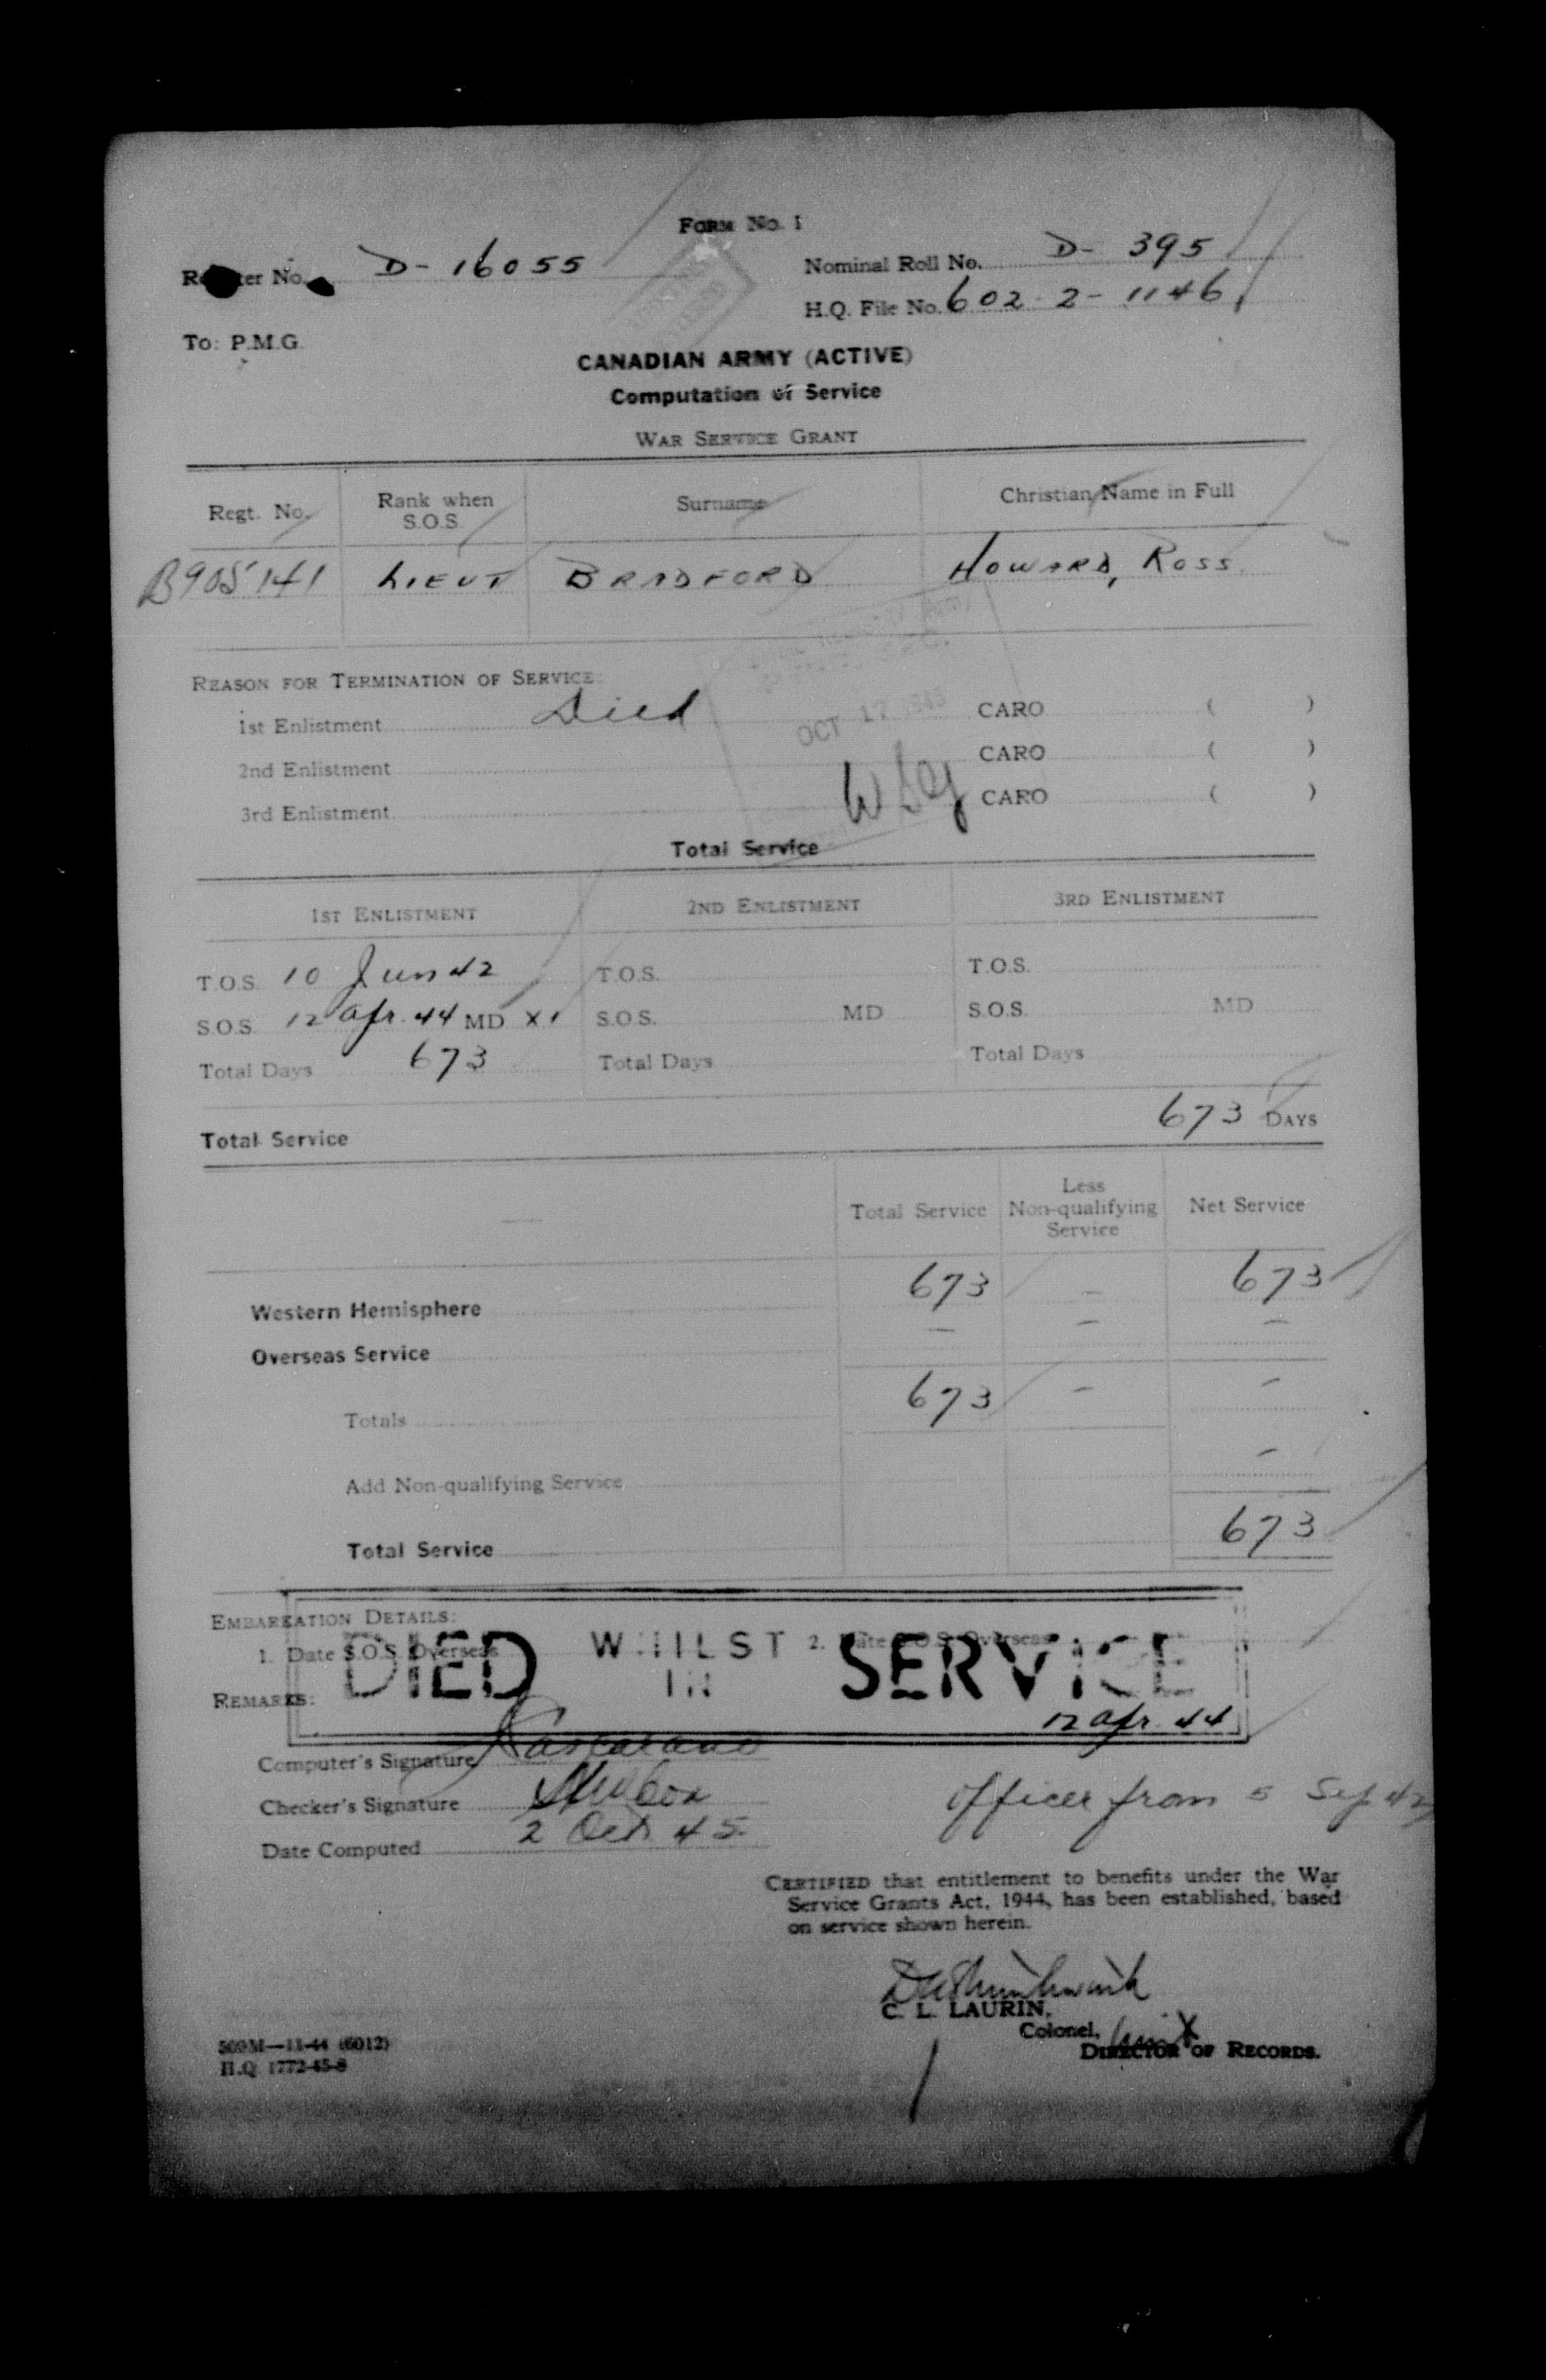 FORM No. 1
Register No. D-16055
Nominal Roll No. D-395
H.Q. File No. 602-2-1146
To: P.M.G.
CANADIAN ARMY (ACTIVE)
Computation of Service
WAR SERVICE GRANT
Regt. No. Rank when S.O.S. Surname Christian Name in Full
B905141 LIEUT BRADFORD HOWARD, ROSS
REASON FOR TERMINATION OF SERVICE:
1st Enlistment Died CARO ( )
OCT 17 1945
2nd Enlistment CARO ( )
3rd Enlistment WSG CARO ( )
Total Service
1ST ENLISTMENT 2ND ENLISTMENT 3RD ENLISTMENT
T.O.S. 10 Jun 42 T.O.S. T.O.S.
S.O.S. 12 Apr. 44 MD X1 S.O.S. MD S.O.S. MD
Total Days 673 Total Days Total Days
Total Service 673 DAYS
Total Service Less Non-qualifying Service Net Service
Western Hemisphere 673 - 673
Overseas Service - - -
Totals 673 - -
Add Non-qualifying Service -
Total Service 673
EMBARKATION DETAILS:
1. Date S.O.S. Overseas 2. Date S.O.S. Overseas
DIED WHILST IN SERVICE
REMARKS:
12 Apr. 44
Computer's Signature
Checker's Signature
Officer from 5 Sep 42
Date Computed 2 Oct 45
CERTIFIED that entitlement to benefits under the War
Service Grants Act, 1944, has been established, based
on service shown herein.
C. L. LAURIN,
Colonel,
DIRECTOR OF RECORDS.
500M—11-44 (6012)
H.Q. 1772-45-8